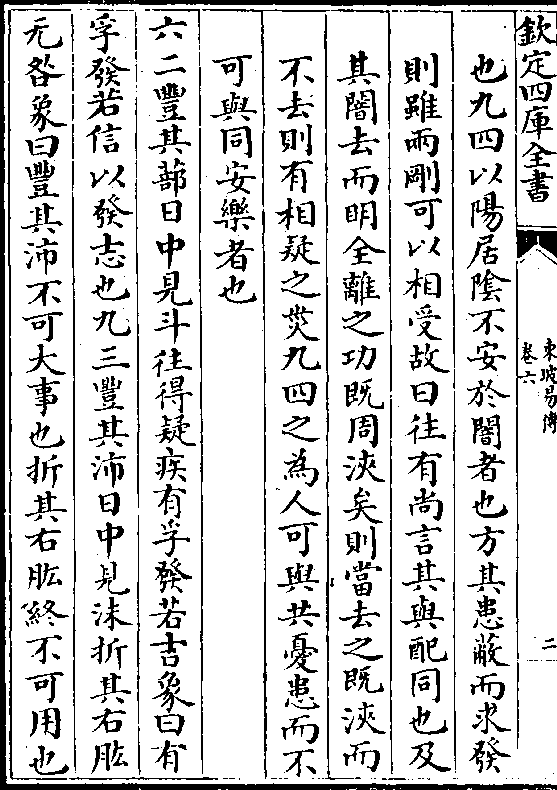 欽定四庫全書
東坡易傳
卷六
二
也九四以陽居陰不安於闇者也方其患蔽而求發
則雖兩剛可以相受故曰往有尚言其與配同也及
其闇去而明全離之功既周浹矣則當去之既浹而
不去則有相疑之烖九四之為人可與共憂患而不
可與同安樂者也
六二豐其蔀日中見斗往得疑疾有孚發若吉象曰有
孚發若信以發志也九三豐其沛日中見沬折其右肱
无咎象曰豐其沛不可大事也折其右肱終不可用也